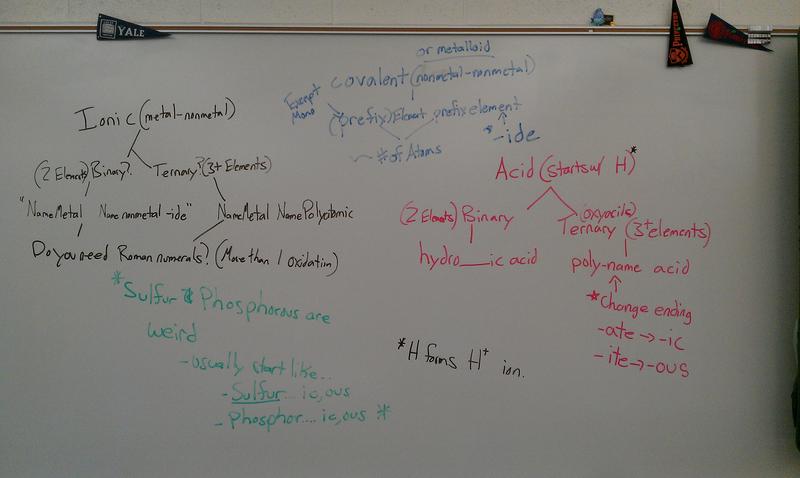 YALE
PRINCETON
or metalloid
covalent (nonmetal-nonmetal)
Except
Mono
(prefix) Element prefix element
*-ide
# of Atoms
Ionic (metal-nonmetal)
(2 Elements) Binary? Ternary? (3+ Elements)
"Name Metal Name nonmetal -ide" Name Metal Name Polyatomic
Do you need Roman numerals? (More than 1 oxidation)
*Sulfur & Phosphorous are
weird
-usually start like...
-Sulfur... ic, ous
-Phosphor.... ic, ous *
Acid (starts w/ H)*
(2 Elements) Binary
hydro___ic acid
(oxyacids)
Ternary (3+ elements)
poly-name acid
*Change ending
-ate → -ic
-ite → -ous
*H forms H+ ion.